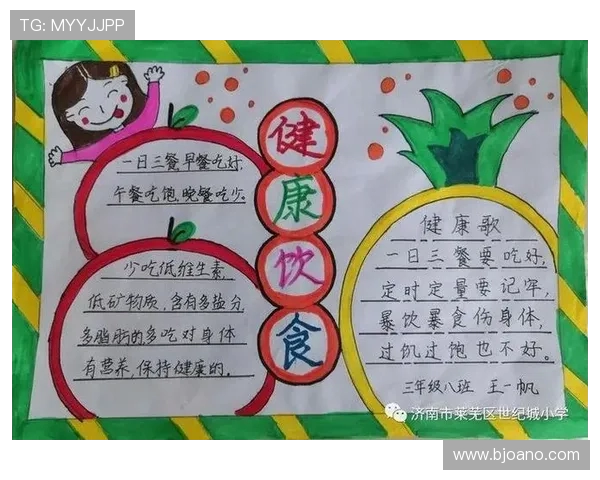 TG: MYYJJPP
健
康
饮
食
一日三餐,早餐吃好,
午餐吃饱,晚餐吃少。
少吃低维生素,
低矿物质,含有多盐分
多脂肪的多吃对身体
有营养,保持健康的。
健康歌
一日三餐要吃好,
定时定量要记牢,
暴饮暴食伤身体,
过饥过饱也不好。
三年级八班 王一帆
济南市莱芜区世纪城小学
www.bjoano.com